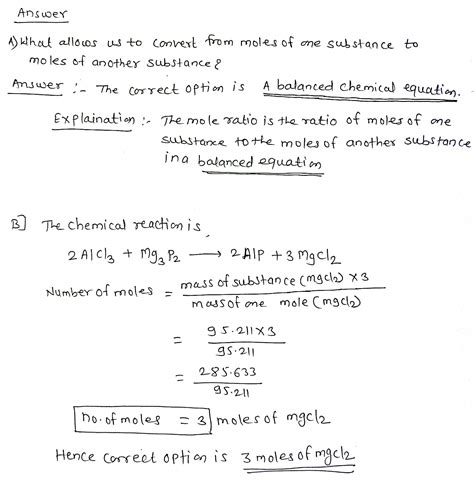 Answer
A) What allows us to convert from moles of one substance to
moles of another substance?
Answer :- The correct option is A balanced chemical equation.
Explaination :- The mole ratio is the ratio of moles of one
substance to the moles of another substance
in a balanced equation
B] The chemical reaction is
2AlCl3 + Mg3P2 ⟶ 2AlP + 3MgCl2
Number of moles = mass of substance (mgcl2) × 3
mass of one mole (mgcl2)
= 95.211×3
95.211
= 285.633
95.211
no. of moles = 3 moles of mgcl2
Hence correct option is 3 moles of mgcl2